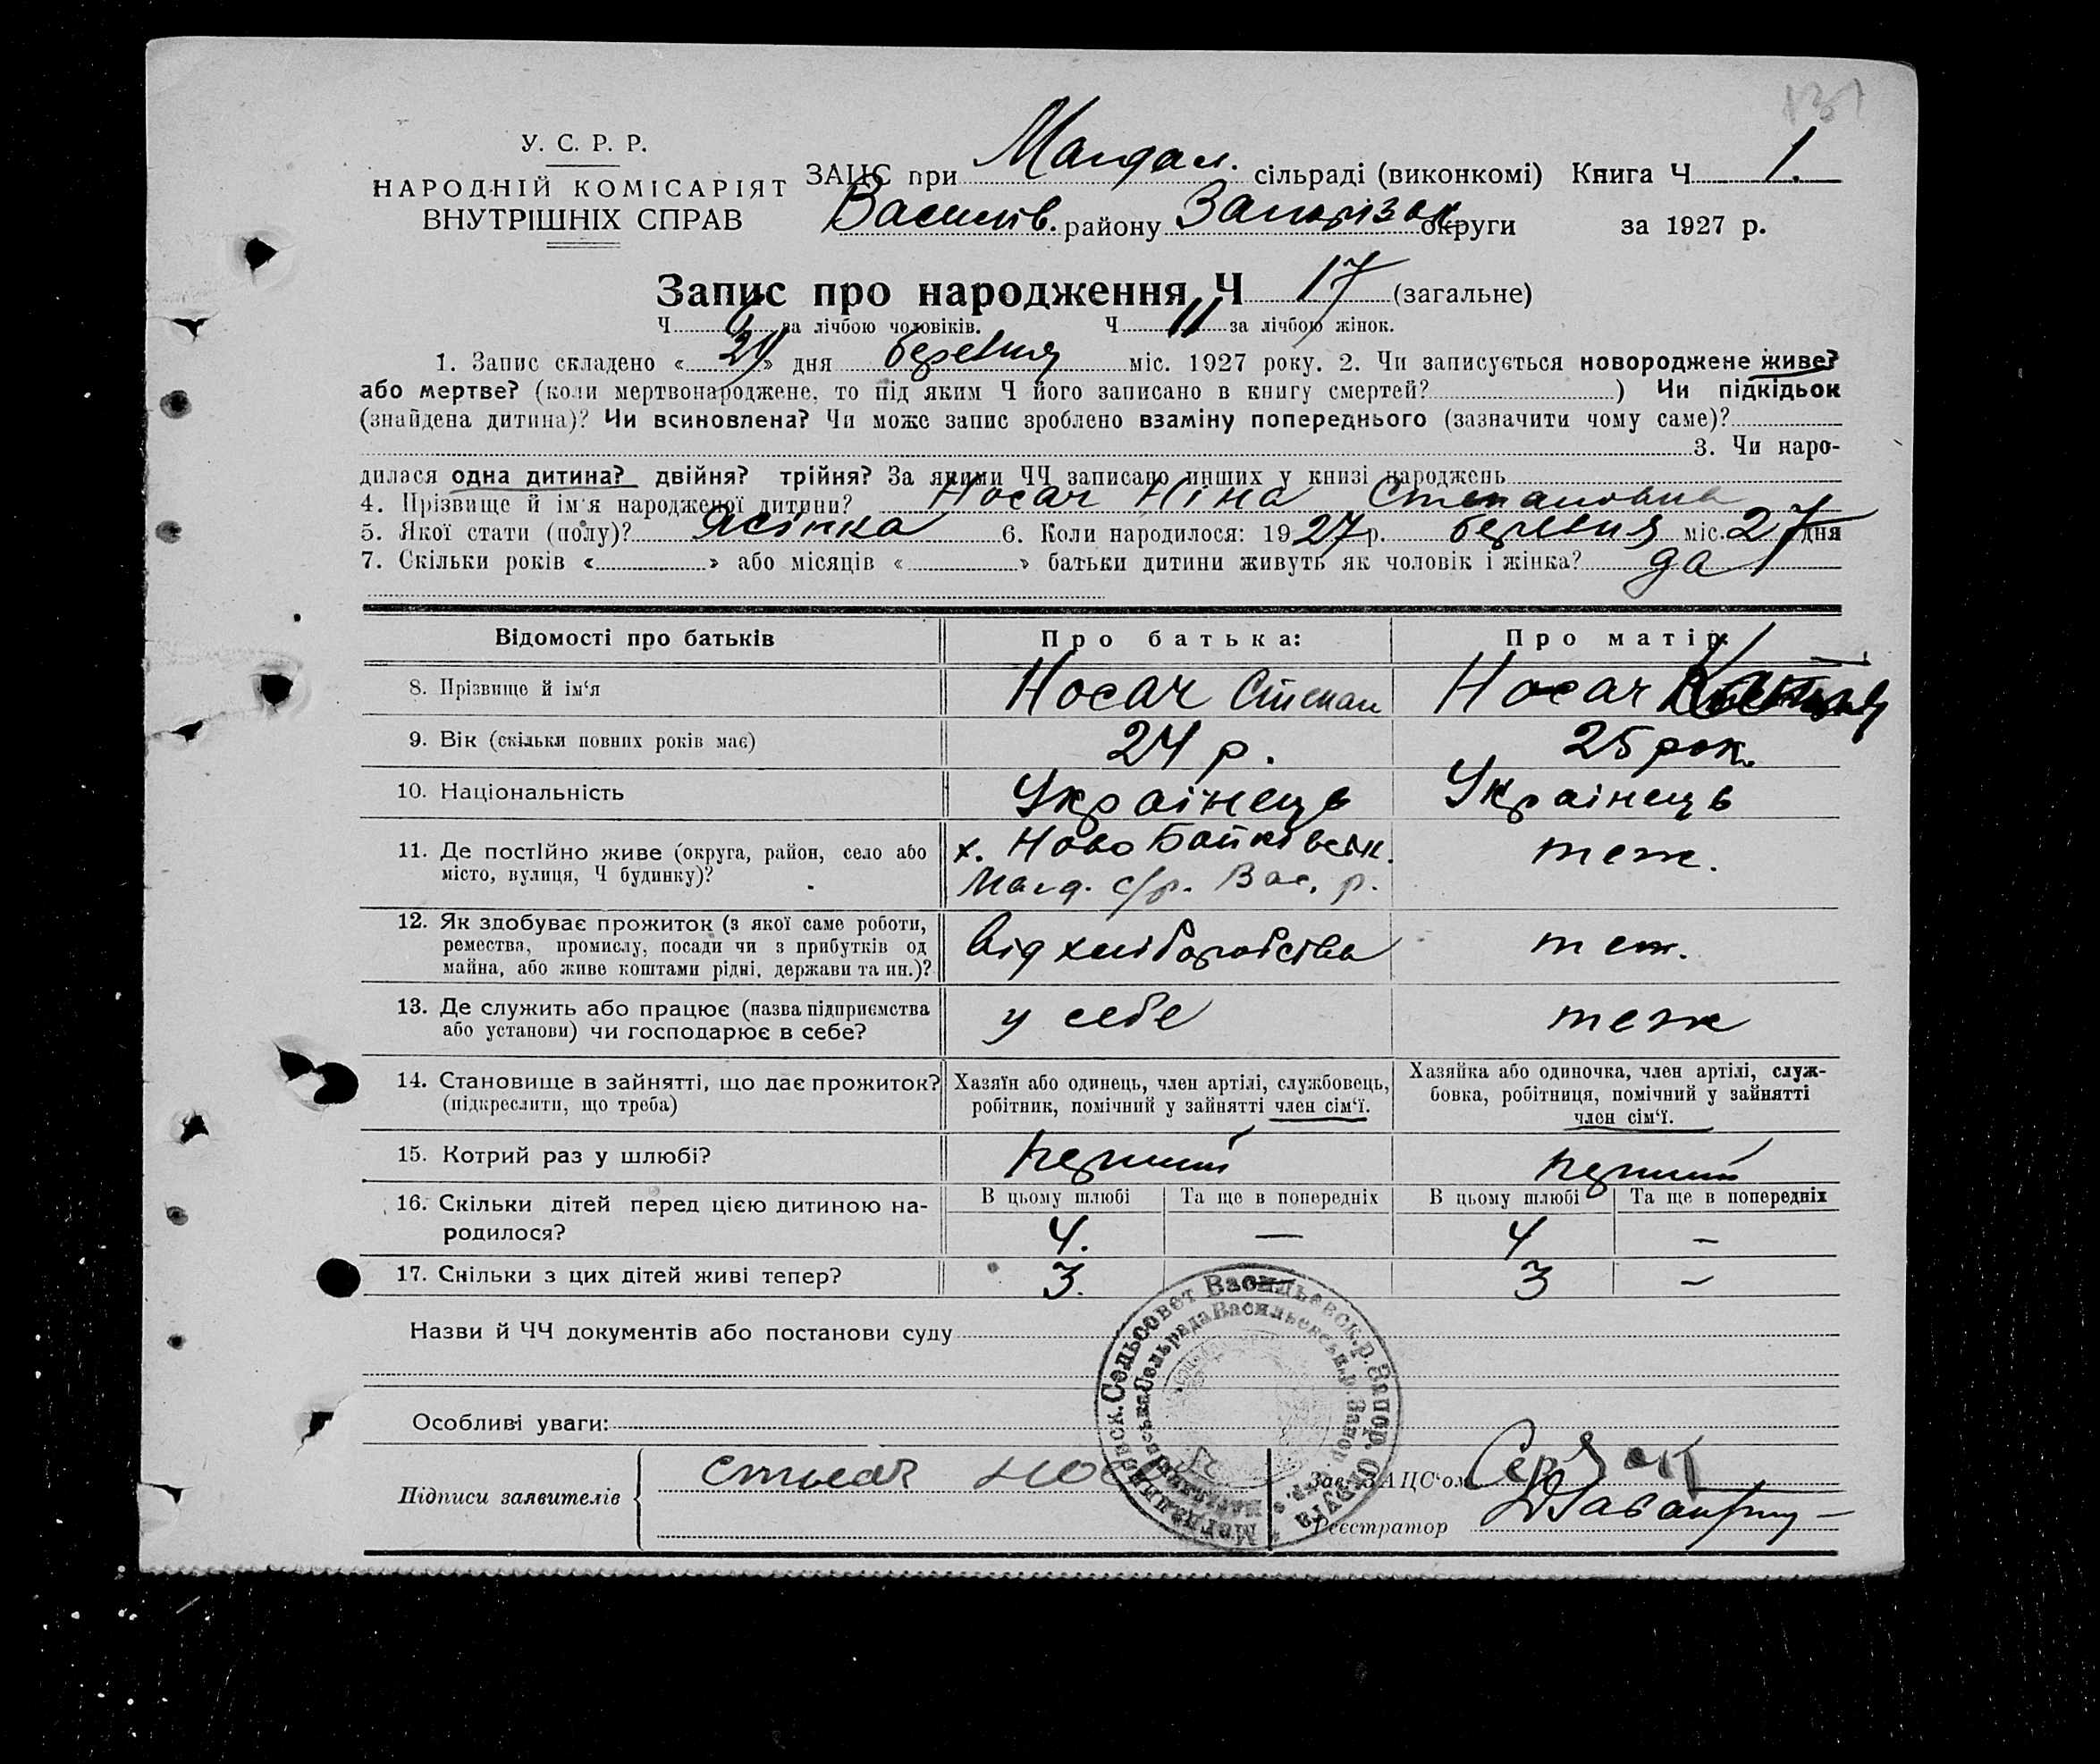 131
У. С. Р. Р.
НАРОДНІЙ КОМІСАРІЯТ
ВНУТРІШНІХ СПРАВ
ЗАЦС при Магдал. сільраді (виконкомі) Книга Ч 1.
Василів. району Запоріз округи за 1927 р.
Запис про народження Ч 17 (загальне)
Ч 6 за лічбою чоловіків. Ч 11 за лічбою жінок.
1. Запис складено « » дня березня міс. 1927 року. 2. Чи записується новороджене живе?
або мертве? (коли мертвонароджене, то під яким Ч його записано в книгу смертей? ) Чи підкідьок
(знайдена дитина)? Чи всиновлена? Чи може запис зроблено взаміну попереднього (зазначити чому саме)?
3. Чи наро-
дилася одна дитина? двійня? трійня? За якими ЧЧ записано инших у книзі народжень
4. Прізвище й ім'я народженої дитини? Носач Ніна Степановна
5. Якої стати (полу)? жінка 6. Коли народилося: 1927 р. березня міс. 27 дня
7. Скільки років « » або місяців « » батьки дитини живуть як чоловік і жінка? да
Відомості про батьків Про батька: Про матір:
8. Прізвище й ім'я Носач Степан Носач
9. Вік (скільки повних років має) 24 р. 25 рок.
10. Національність Украінець Украінець
11. Де постійно живе (округа, район, село або
місто, вулиця, Ч будинку)?
х. Ново
Магд. с/р. Вас. р.
теж.
12. Як здобуває прожиток (з якої саме роботи,
ремества, промислу, посади чи з прибутків од
майна, або живе коштами рідні, держави та ин.)?
від хліборобства теж.
13. Де служить або працює (назва підприємства
або установи) чи господарює в себе?
у себе теж
14. Становище в зайнятті, що дає прожиток?
(підкреслити, що треба)
Хазяїн або одинець, член артілі, службовець,
робітник, помічний у зайнятті член сім'ї.
Хазяйка або одиночка, член артілі, служ-
бовка, робітниця, помічний у зайнятті
член сім'ї.
15. Котрий раз у шлюбі? перший перший
16. Скільки дітей перед цією дитиною на-
родилося?
В цьому шлюбі Та ще в попередніх В цьому шлюбі Та ще в попередніх
4. — 4 –
17. Скільки з цих дітей живі тепер? 3. 3 –
Назви й ЧЧ документів або постанови суду
Особливі уваги:
Підписи заявителів
Зав. ЗАЦС'ом
Реєстратор
Сельсовет Васильевск. р. Запор. Округа
Сельрада Васильевськ. р. Запор.